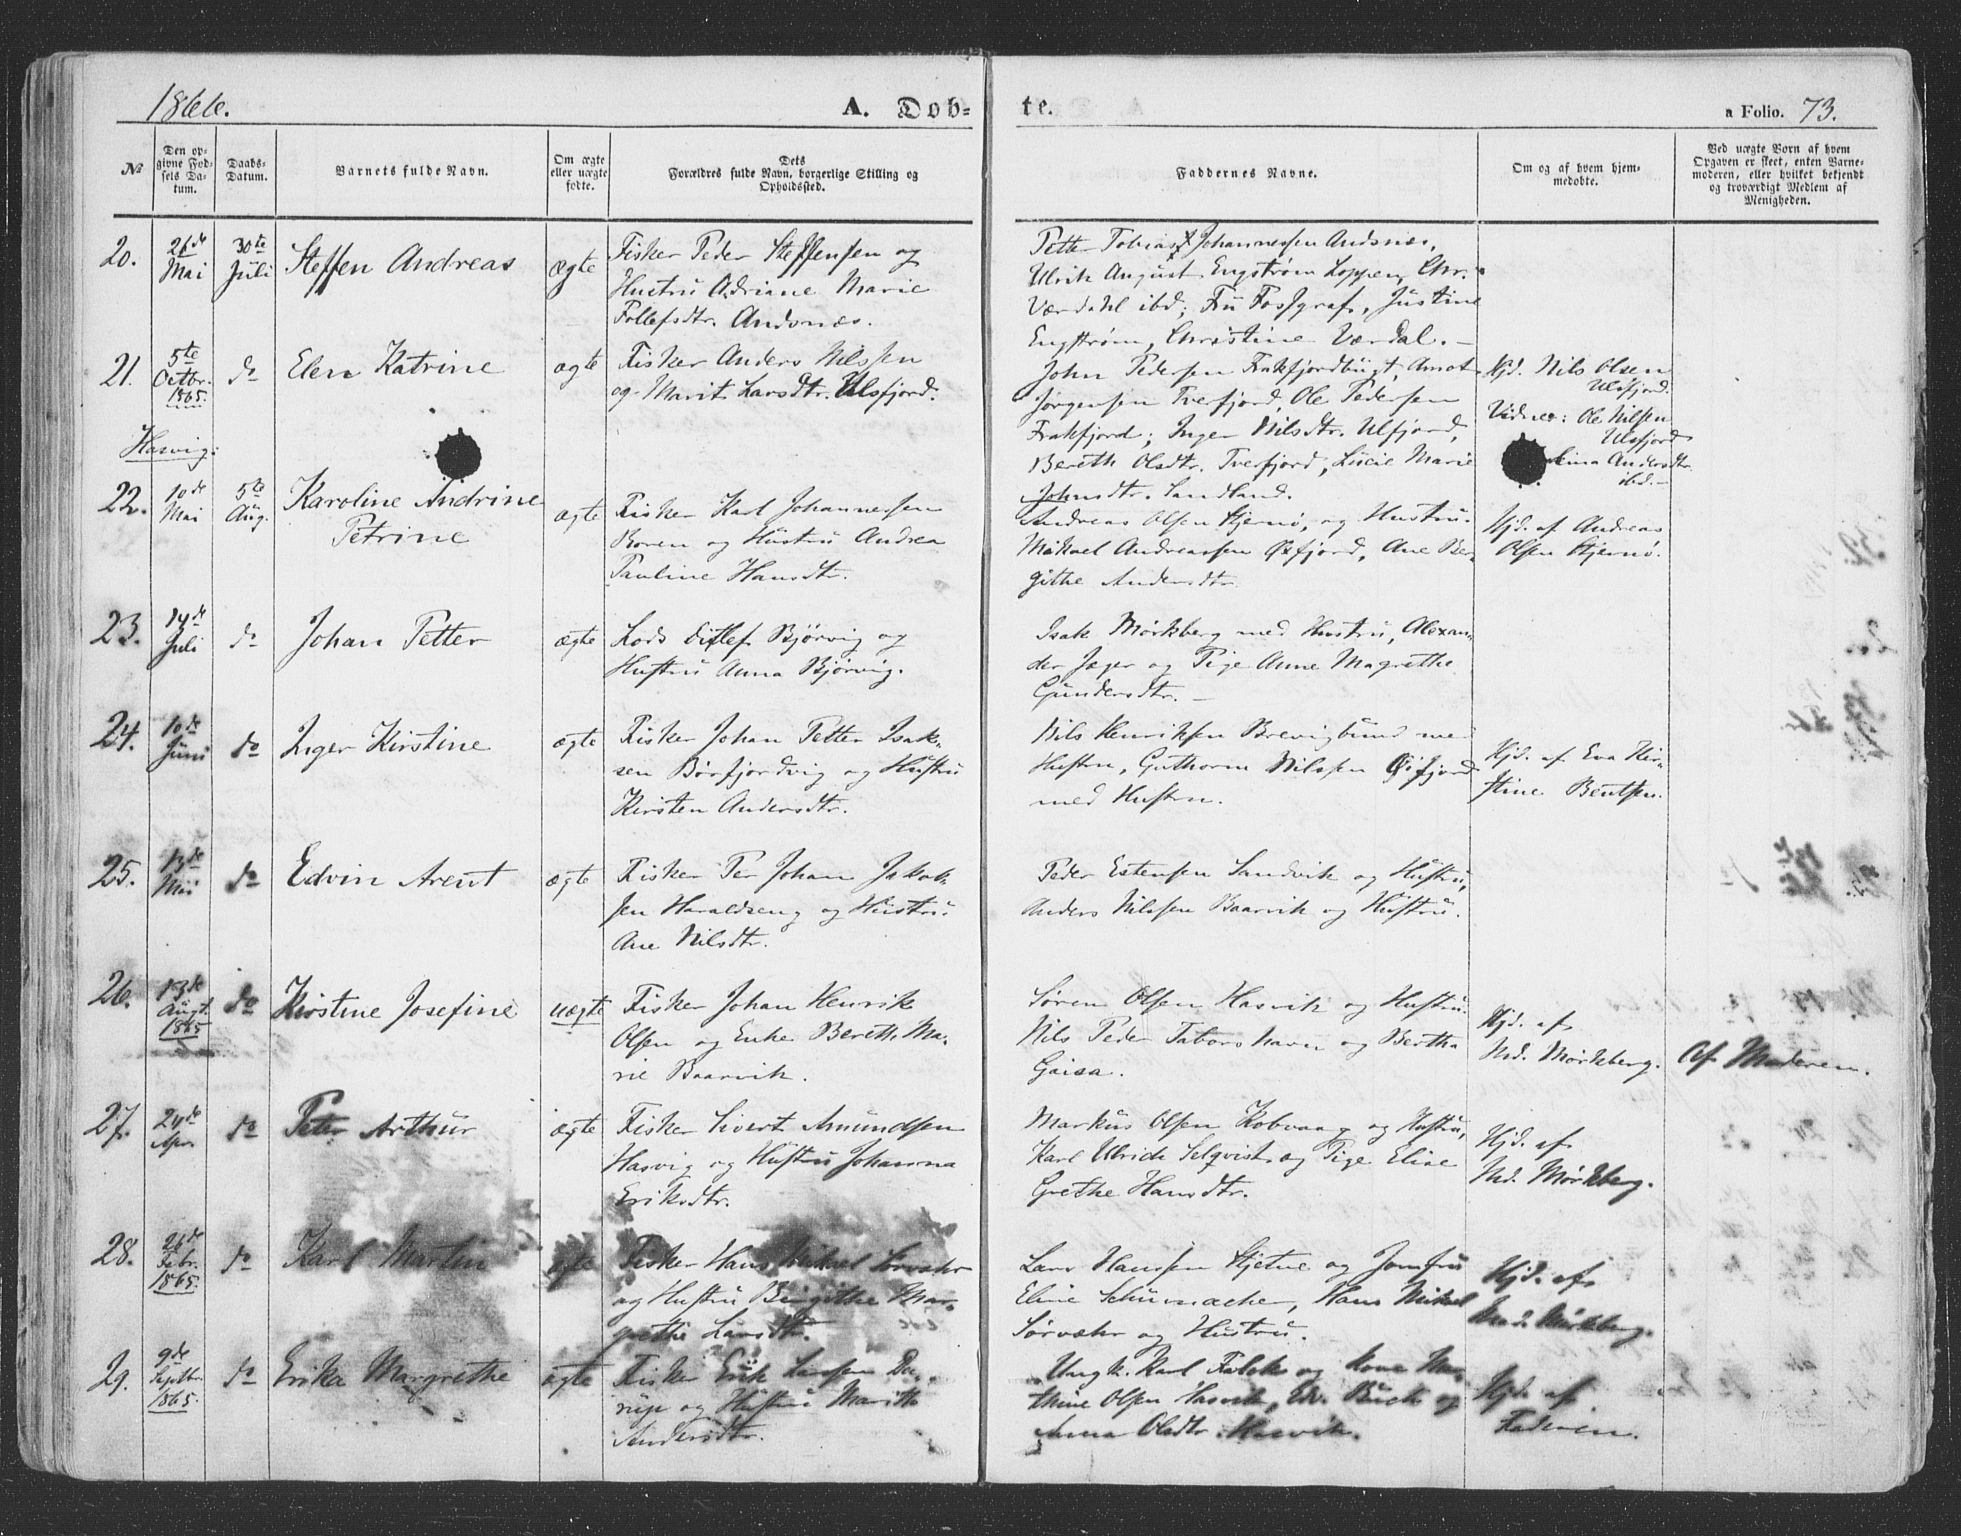 1866.
A. Dob-
te.
a Folio. 73.
№
Den op-
givne Fød-
sels Da-
tum.
Daabs-
Datum.
Barnets fulde Navn.
Om ægte
eller uægte
fødte.
Dets
Forældres fulde Navn, borgerlige Stilling og
Opholdssted.
Faddernes Navne.
Om og af hvem hjem-
medøbte.
Ved uægte Born af hvem
Opgaven er skeet, enten Barne-
moderen, eller hvilket bekjendt
og troværdigt Medlem af
Menigheden.
20.
26de
Mai
30te
Juli
Steffen Andreas
ægte
Fisker Peder Steffensen og
Hustru Adriane Marie
Tollefsdtr. Andsnæs.
Petter Tobias Johannessen Andsnæs,
Ulrik August Engstrøm Loppen, Chr.
Værdahl ibd; Fru Fosfgraf, Justine
Engstrøm, Christine Værdal. –
21.
5te
Octbr.
1865.
do
Elen Katrine
ægte
Fisker Anders Nilssen
og Marit Larsdtr. Ulsfjord.
John Pedersen Frakfjordbugt, Arnot
Jørgensen Tverfjord, Ole Pedersen
Frakfjord; Inger Nilsdtr. Ulfjord,
Bereth Olsdtr. Tverfjord, Lucie Marie
Johnsdtr. Sandland.
Hjd. Nils Olsen
Ulsfjord.
Vidner: Ole Nilsen
Ulsfjord
Anderdtr.
ibd. –
Hasvig:
22.
10de
Mai
5te
Aug.
Karoline Andrine
Petrine
ægte
Fisker Karl Johannesen
Boren og Hustru Andrea
Pauline Hansdtr.
Andreas Olsen Stjernø, og Hustru.
Mikael Andreassen Øxfjord, Ane Ber-
githe Andersdtr.
Hjd. af Andreas
Olsen Stjernø.
23.
14de
Juli
do
Johan Petter
ægte
Lods Ditlef Bjørvig og
Hustru Anna Bjørvig.
Isak Mørkberg med Hustru, Alexan-
der Jæger og Pige Anne Magrethe
Gundersdtr. –
24.
10de
Juni
do
Inger Kirstine
ægte
Fisker Johan Petter Isak-
sen Børfjordvig og Hustru
Kirsten Andersdtr.
Nils Henriksen Brevigbund med
Hustru, Guthorm Nilssen Øifjord
med Hustru.
Hjd. af Eva Kir-
stine Bentsen.
25.
13de
Mai
do
Edvin Arent
ægte
Fisker Per Johan Jakob-
sen Haraldseng og Hustru
Ane Nilsdtr.
Peder Estensen Sandvik og Hustru,
Anders Nilssen Baarvik og Hustru.
26.
13de
Augt.
1865
do
Kirstine Josefine
uægte
Fisker Johan Henrik
Olsen og Enke Bereth Ma-
rie Baarvik.
Søren Olsen Hasvik og Hustru.
Nils Peder Tabors Navn og Bertha
Gaisa.
Hjd. af
Md. Mørkberg.
Af Moderen.
27.
24de
Apr.
do
Peter Arthur
ægte
Fisker Sivert Amundsen
Hasvig og Hustru Johanna
Eriksdtr.
Markus Olsen Kobvaag og Hustru,
Karl Ulrich Selqvist og Pige Elise
Grethe Hansdtr.
Hjd. af
Md. Mørkberg.
28.
26de
Febr.
1865.
do
Karl Martin
ægte
Fisker Hans Mikael Sørvær
og Hustru Birgithe Mar-
grethe Larsdtr.
Lars Hansen Stjerne og Jomfru
Eline Schumacher, Hans Mikael
Sørvær og Hustru.
Hjd. af
Mad. Mørkberg.
29.
9de
Septbr.
1865.
do
Erika Margrethe
ægte
Fisker Erik Larssen
og Hustru Marith
Andersdtr.
Ungk. Karl Falck og Kone
thine Olsen Hasvik, Edv. Buck og
Anna Olsdtr. Hasvik.
Hjd. af
Faderen.